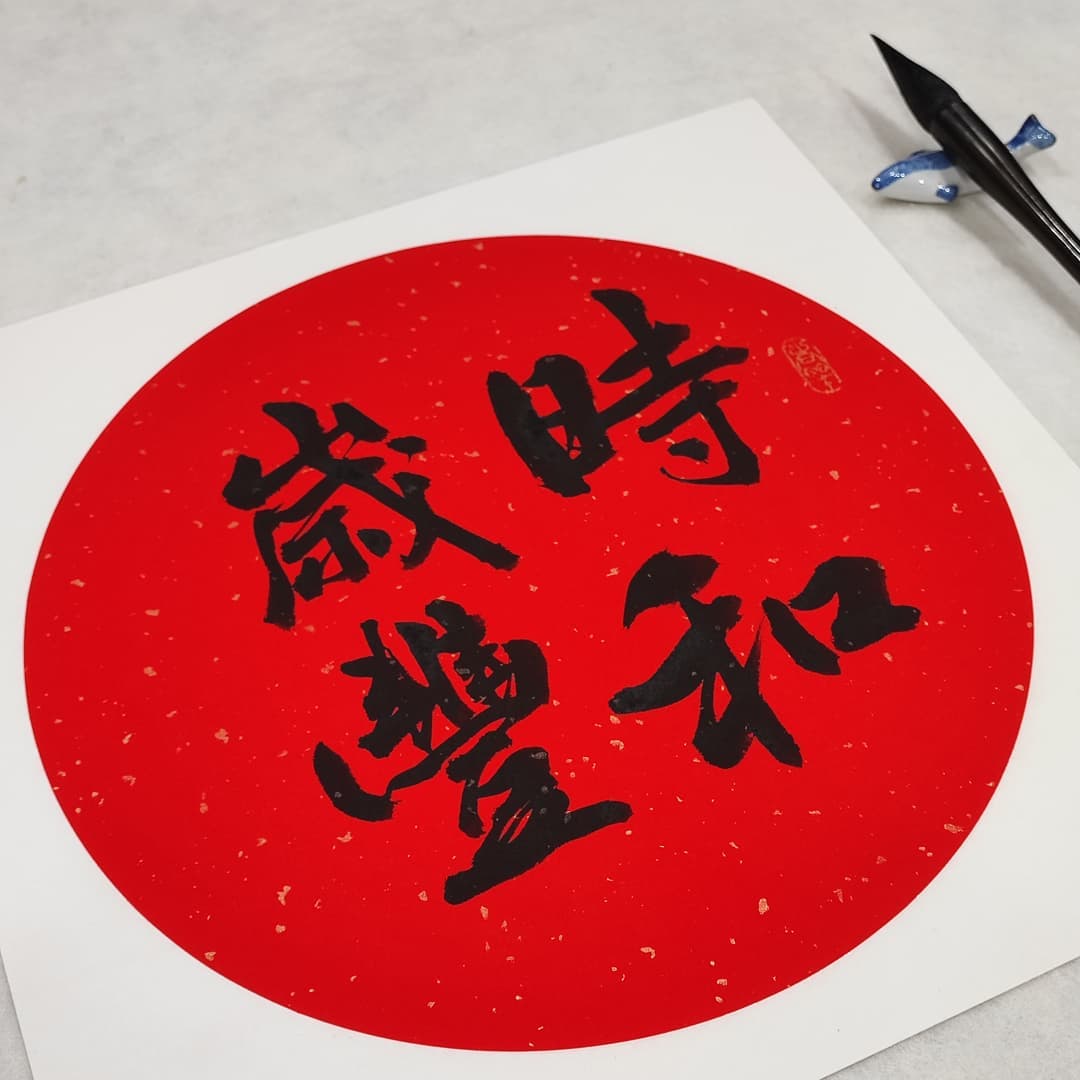 時和
歲豐